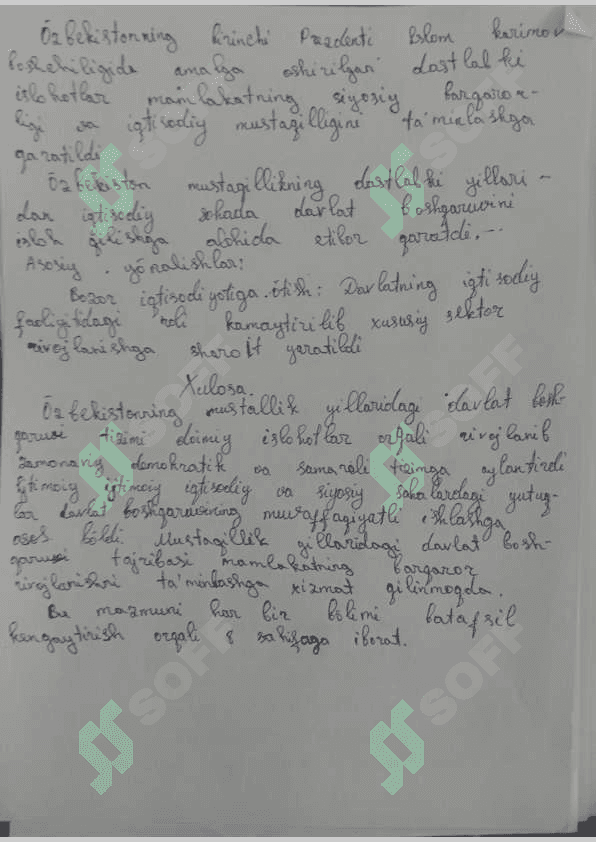 Özbekistonning birinchi Prezdenti Islom Karimov
boshchiligida amalga oshirilgan dastlabki
islohotlar mamlakatning siyosiy barqaror-
ligi va iqtisodiy mustaqilligini ta'minlashga
qaratildi
Özbekiston mustaqillikning dastlabki yillari-
dan iqtisodiy sohada davlat boshqaruvini
isloh qilishga alohida etibor qaratdi.
Asosiy yönalishlar:
Bozor iqtisodiyotiga ötish: Davlatning iqtisodiy
faoliyatidagi roli kamaytirilib xususiy sektor
rivojlanishga sharoit yaratildi
Xulosa.
Özbekistonning mustallik yillaridagi davlat bosh-
qaruvi tizimi doimiy islohotlar orqali rivojlanib
zamonaviy demokratik va samarali tizimga aylantirdi
Ijtimoiy ijtimoiy iqtisodiy va siyosiy sohalardagi yutuq-
lar davlat boshqaruvining muvaffaqiyatli ishlashga
asos böldi. Mustaqillik yillaridagi davlat bosh-
qaruvi tajribasi mamlakatning barqaror
rivojlanishni ta'minlashga xizmat qilinmoqda.
Bu mazmuni har bir bölimi batafsil
kengaytirish orqali 8 sahifaga iborat.
SOFF
SOFF
SOFF
SOFF
SOFF
SOFF